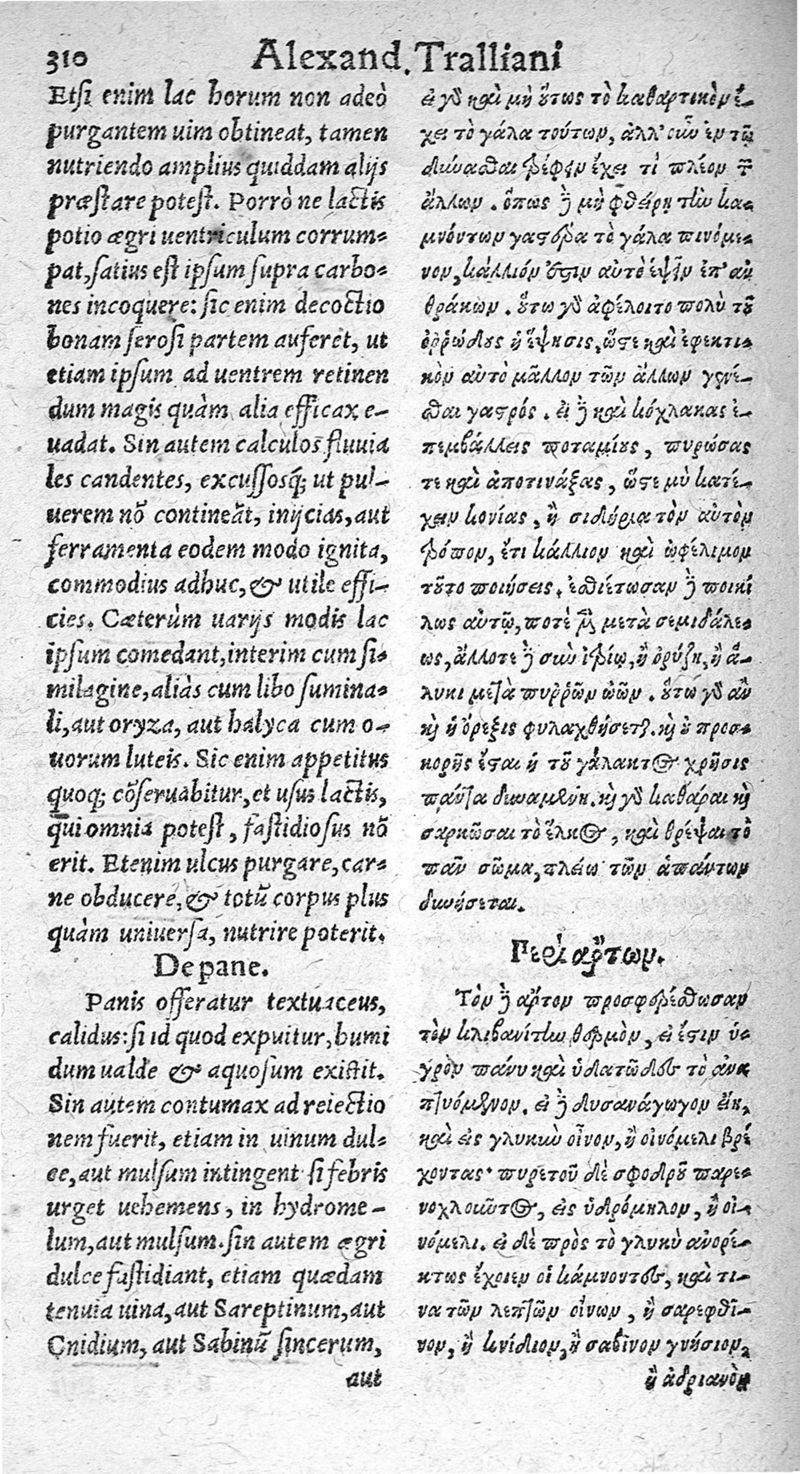 310
Alexand. Tralliani
Etsi enim lac horum non adeò
purgantem uim obtineat, tamen
nutriendo amplius quiddam alijs
præstare potest. Porrò ne lactis
potio ægri uentriculum corrum-
pat, satius est ipsum supra carbo-
nes incoquere: sic enim decoctio
bonam serosi partem auferet, ut
etiam ipsum ad uentrem retinen
dum magis quàm alia efficax e-
uadat. Sin autem calculos fluuia
les candentes, excussosq́; ut pul-
uerem nō contineāt, inijcias, aut
ferramenta eodem modo ignita,
commodius adhuc, & utile effi-
cies. Cæterùm uarijs modis lac
ipsum comedant, interim cum si-
milagine, aliàs cum libo sumina-
li, aut oryza, aut halyca cum o-
uorum luteis. Sic enim appetitus
quoq; cōseruabitur, et usus lactis,
qui omnia potest, fastidiosus nō
erit. Etenim ulcus purgare, car-
ne obducere, & totū corpus plus
quàm uniuersa, nutrire poterit.
De pane.
Panis offeratur textuaceus,
calidus: si id quod expuitur, humi
dum ualde & aquosum existit.
Sin autem contumax ad reiectio
nem fuerit, etiam in uinum dul-
ce, aut mulsum intingent si febris
urget uehemens, in hydrome-
lum, aut mulsum. sin autem ægri
dulce fastidiant, etiam quædam
tenuia uina, aut Sareptinum, aut
Cnidium, aut Sabinū sincerum,
aut
εἰ γὸ καὶ μὴ ὅτως τὸ καθαρτικὸν ἔ-
χει τὸ γάλα τούτων, ἀλλ' οὖν ἐν τῷ
δύναθαι τρέφειν ἔχει τὶ πλέον τ̃
ἄλλων. ὅπως ἢ μὴ φθάρῃ τὼ κα-
μνόντων γαστέρα τὸ γάλα πινόμε-
νον, κάλλιόν ἐστιν αὐτὸ ἑψεῖν ἐπ' αν
θράκων. ὅτω γὸ ἀφέλοιτο πολὺ τȣ̃
ὀῤῥώδȣς ἡ ἕψησις, ὥστε καὶ ἐφεκτι-
κὸν αὐτὸ μᾶλλον τῶν ἄλλων γενέ-
θαι γαστρός. εἰ ἢ καὶ κόχλακας ἐ-
πεμβάλλεις ποταμίȣς, πυρώσας
τε καὶ ἀποτινάξας, ὥστε μὴ κατέ-
χειν κονίας, ἢ σιδήρια τὸν αὐτὸν
τρόπον, ἔτι κάλλιον καὶ ὠφέλιμον
τȣ̃το ποιήσεις. ἐθιέτωσαν ἢ ποικί
λως αὐτῷ, ποτὲ μὲν μετὰ σεμιδάλε-
ως, ἄλλοτε ἢ σὺν ἰτρίῳ, ἢ ὀρύζῃ, ἢ ἅ-
λυκι μετὰ πυῤῥῶν ὠῶν. ὅτω γὸ ἂν
κὴ ἡ ὄρεξις φυλαχθήσεται. κὴ ὀ προσ-
κορὴς ἔσται ἡ τȣ̃ γάλακτος χρῆσις
πάντα δυναμένη. κὴ γὸ καθάραι κὴ
σαρκῶσαι τὸ ἕλκος, καὶ θρέψαι τὸ
πᾶν σῶμα, πλέω τῶν ἁπάντων
δυνήσεται.
Περὶ ἄρτων.
Τὸν ἢ ἄρτον προσφερέθωσαν
τὸν κλιβανίτὼ θερμὸν, εἰ ἔστιν ὑ-
γρὸν πάνυ καὶ ὑδατῶδες τὸ ἀνα
πτυόμενον. εἰ ἢ δυσανάγωγον εἴη,
καὶ εἰς γλυκὺν οἶνον, ἢ οἰνόμελι βρέ
χοντας· πυρετοῦ δὲ σφοδρȣ̃ παρε-
νοχλοῦντος, εἰς ὑδρόμηλον, ἢ οἰ-
νόμελι. εἰ δὲ πρὸς τὸ γλυκὺ ἀνορέ-
κτως ἔχοιεν οἱ κάμνοντες, καὶ τι-
να τῶν λεπτῶν οἴνων, ἢ σαρεφθῖ-
νον, ἢ κνίδιον, ἢ σαβῖνον γνήσιον,
ἢ ἀδριανὸν